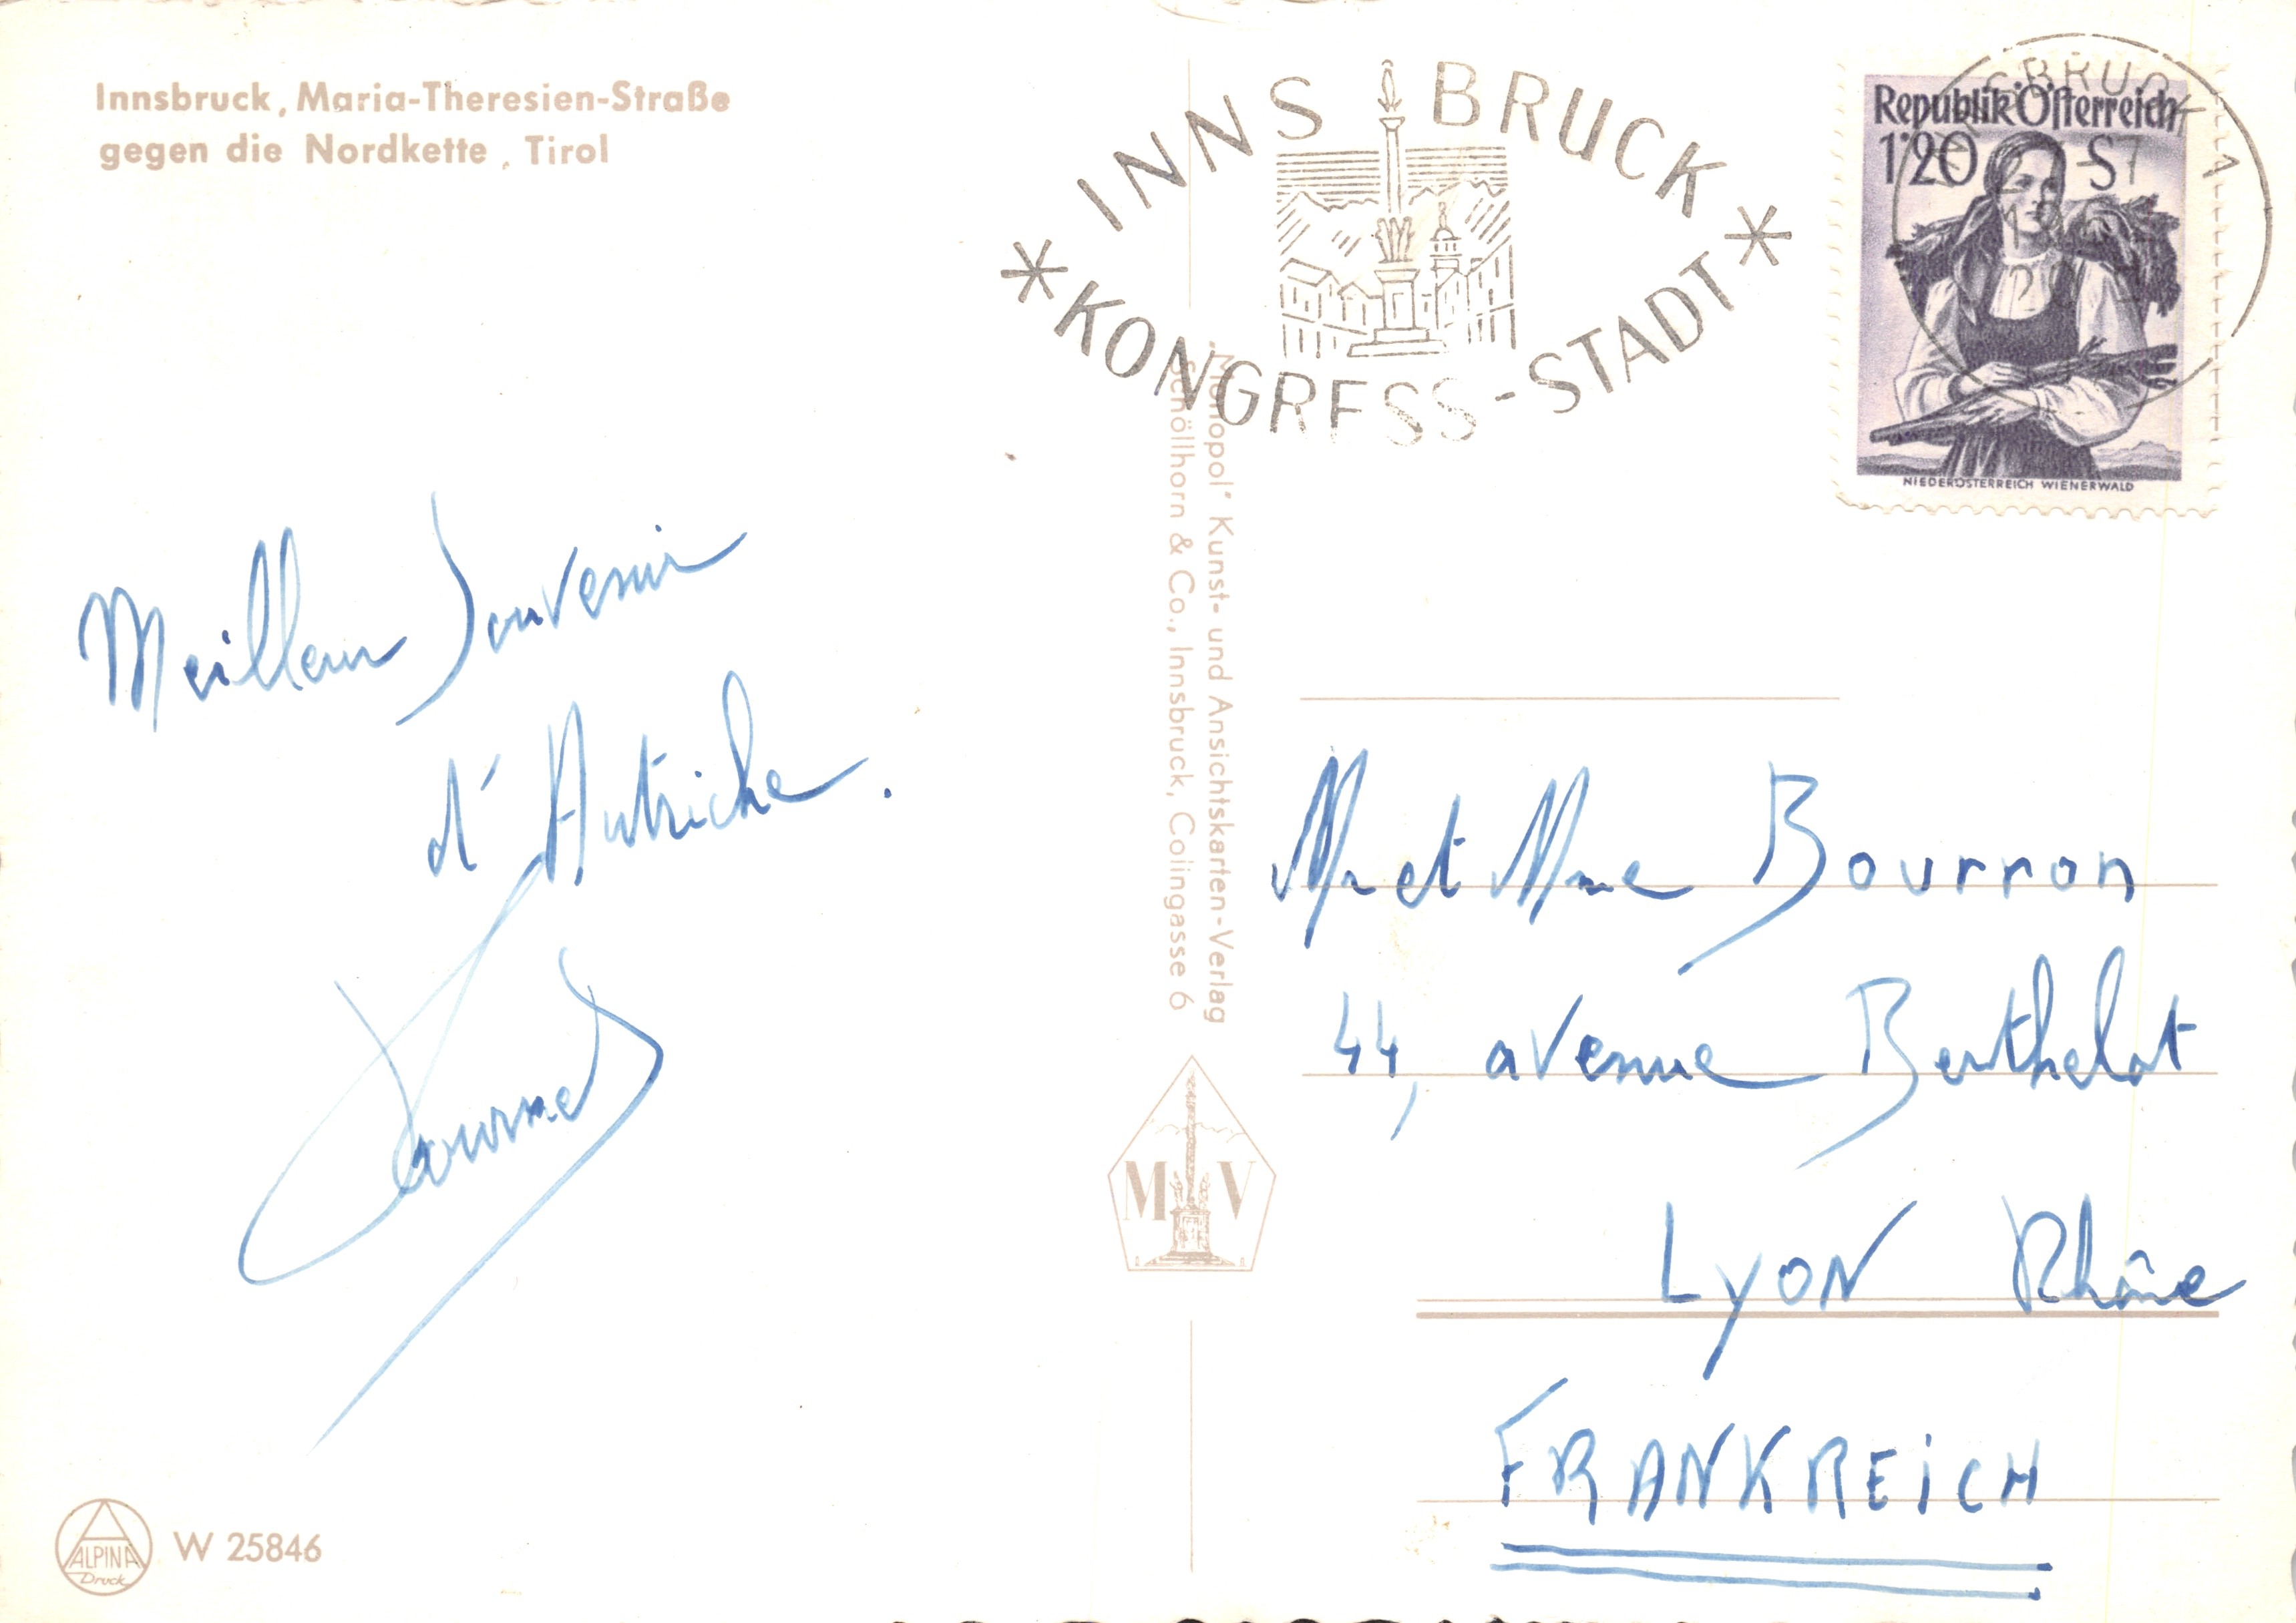 Innsbruck, Maria-Theresien-Straße
gegen die Nordkette, Tirol
INNSBRUCK
* KONGRESS-STADT *
Republik Österreich
1'20 S
NIEDERÖSTERREICH WIENERWALD
Meilleur Souvenir
d'Autriche.
"Monopol" Kunst- und Ansichtskarten-Verlag
Schöllhorn & Co., Innsbruck, Coingasse 6
M V
Mr et Mme Bourron
44, avenue Berthelot
LYON Rhône
FRANKREICH
ALPINA
Druck
W 25846